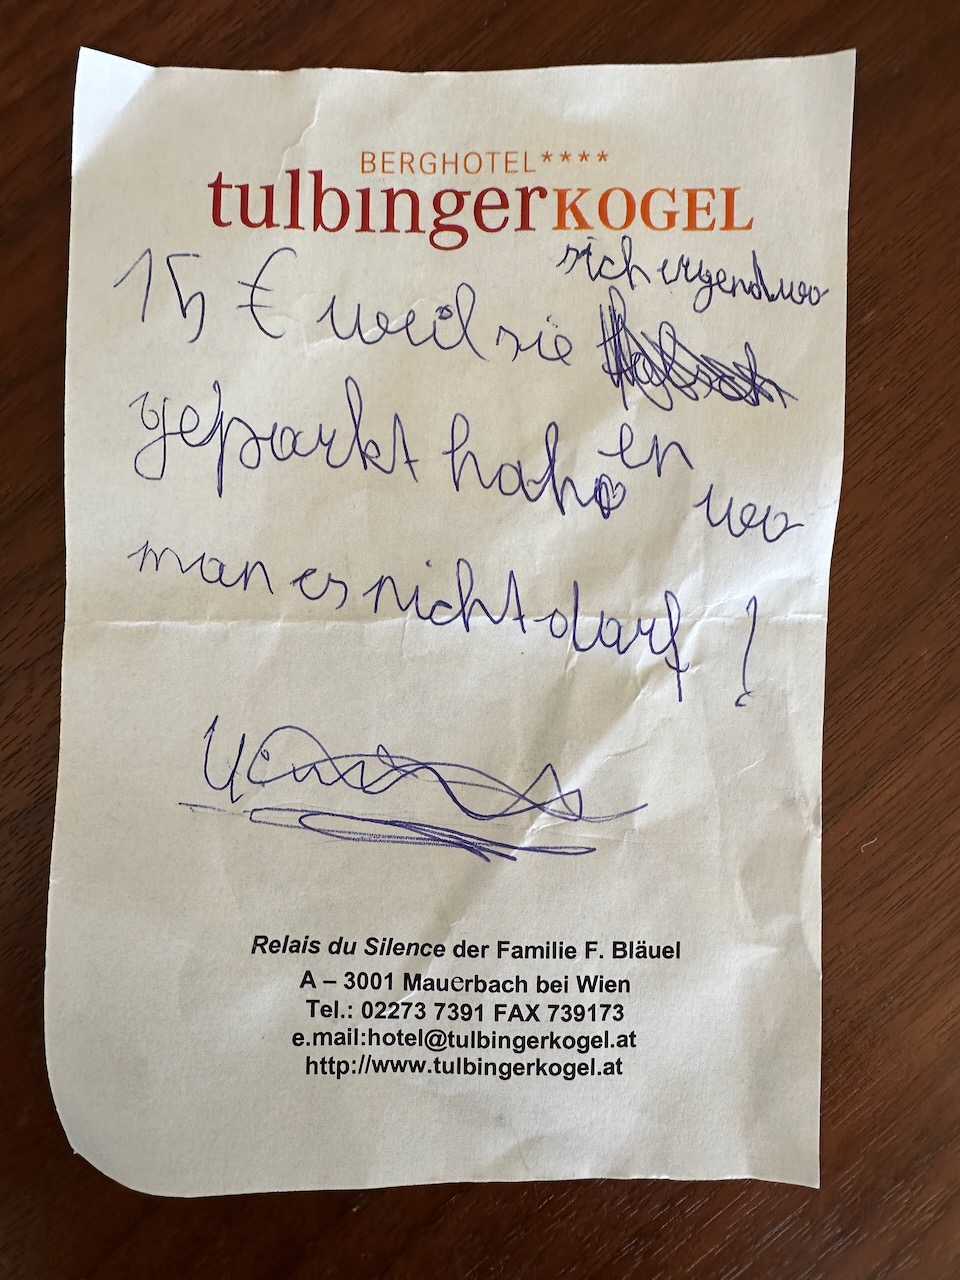 BERGHOTEL****
tulbingerKOGEL
sich irgendwo
15 € weil sie
geparkt haben wo
man es nicht darf!
Relais du Silence der Familie F. Bläuel
A – 3001 Mauerbach bei Wien
Tel.: 02273 7391 FAX 739173
e.mail:hotel@tulbingerkogel.at
http://www.tulbingerkogel.at